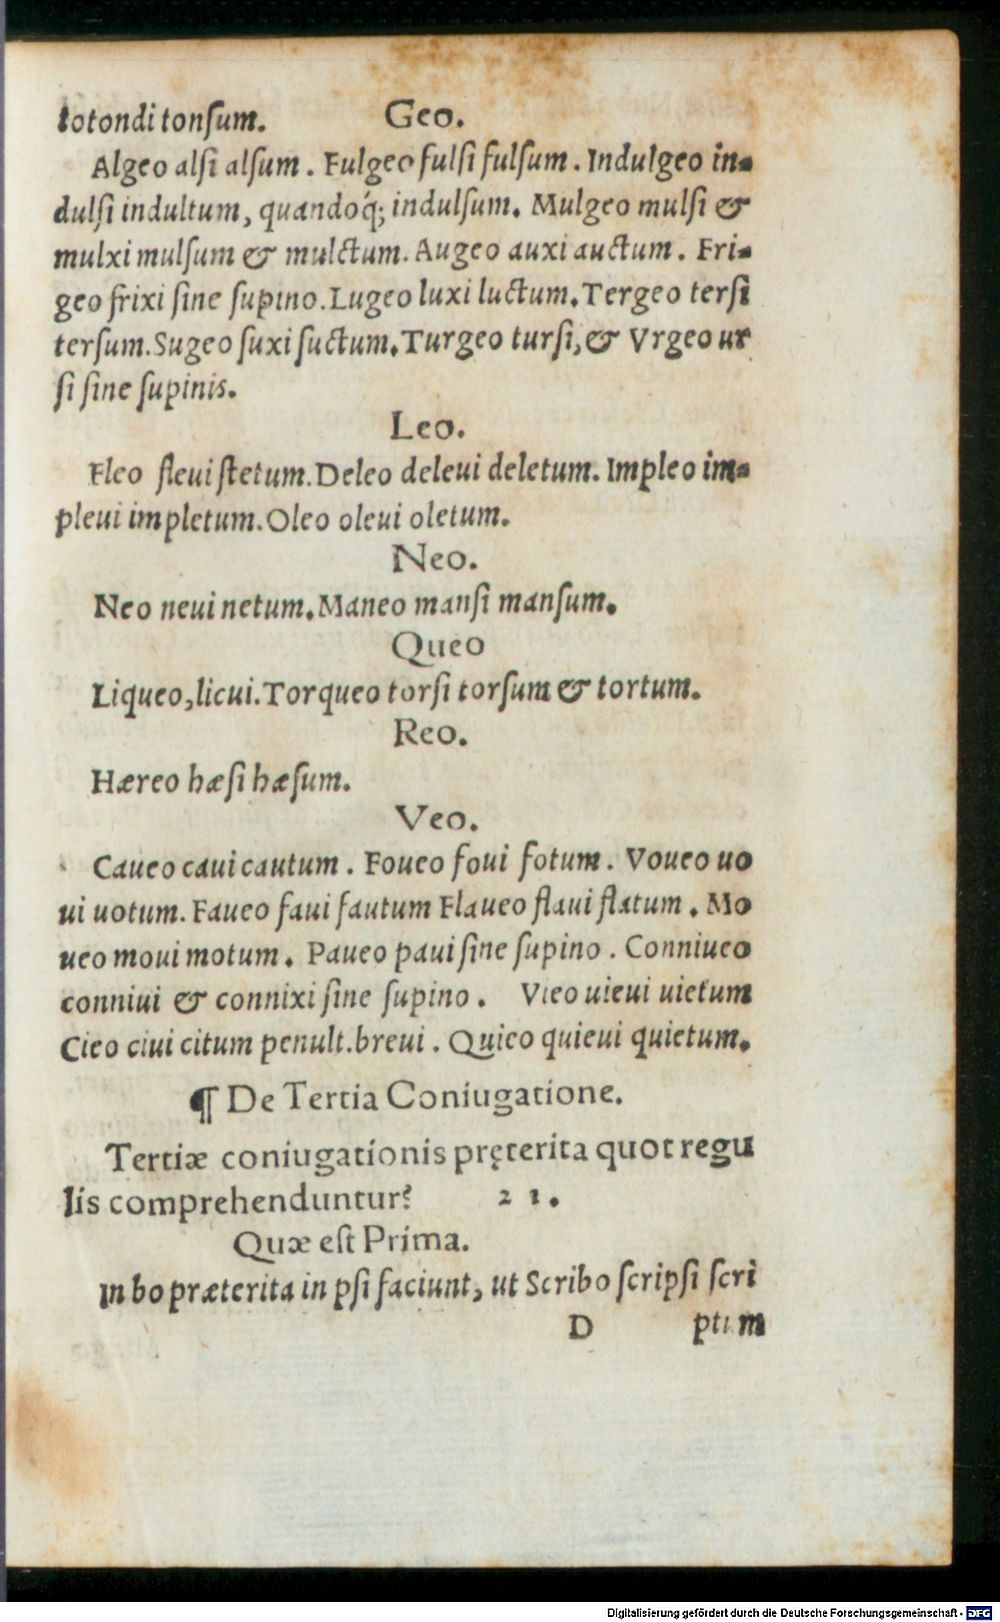 totondi tonſum. Geo.
Algeo alſi alſum. Fulgeo fulſi fulſum. Indulgeo in-
dulſi indultum, quandoq́; indulſum. Mulgeo mulſi &
mulxi mulſum & mulctum. Augeo auxi auctum. Fri-
geo frixi ſine ſupino. Lugeo luxi luctum. Tergeo terſi
terſum. Sugeo ſuxi ſuctum. Turgeo turſi, & Vrgeo ur
ſi ſine ſupinis.
Leo.
Fleo fleui fletum. Deleo deleui deletum. Impleo im-
pleui impletum. Oleo oleui oletum.
Neo.
Neo neui netum. Maneo manſi manſum.
Queo
Liqueo, licui. Torqueo torſi torſum & tortum.
Reo.
Hæreo hæſi hæſum.
Veo.
Caueo caui cautum. Foueo foui fotum. Voueo uo
ui uotum. Faueo faui fautum Flaueo flaui flatum. Mo
ueo moui motum. Paueo paui ſine ſupino. Conniueo
conniui & connixi ſine ſupino. Vieo uieui uietum
Cieo ciui citum penult. breui. Quieo quieui quietum.
¶ De Tertia Coniugatione.
Tertiæ coniugationis pręterita quot regu
lis comprehenduntur? 21.
Quæ eſt Prima.
In bo præterita in pſi faciunt, ut Scribo ſcripſi ſcri
D ptum
Digitalisierung gefördert durch die Deutsche Forschungsgemeinschaft - DFG